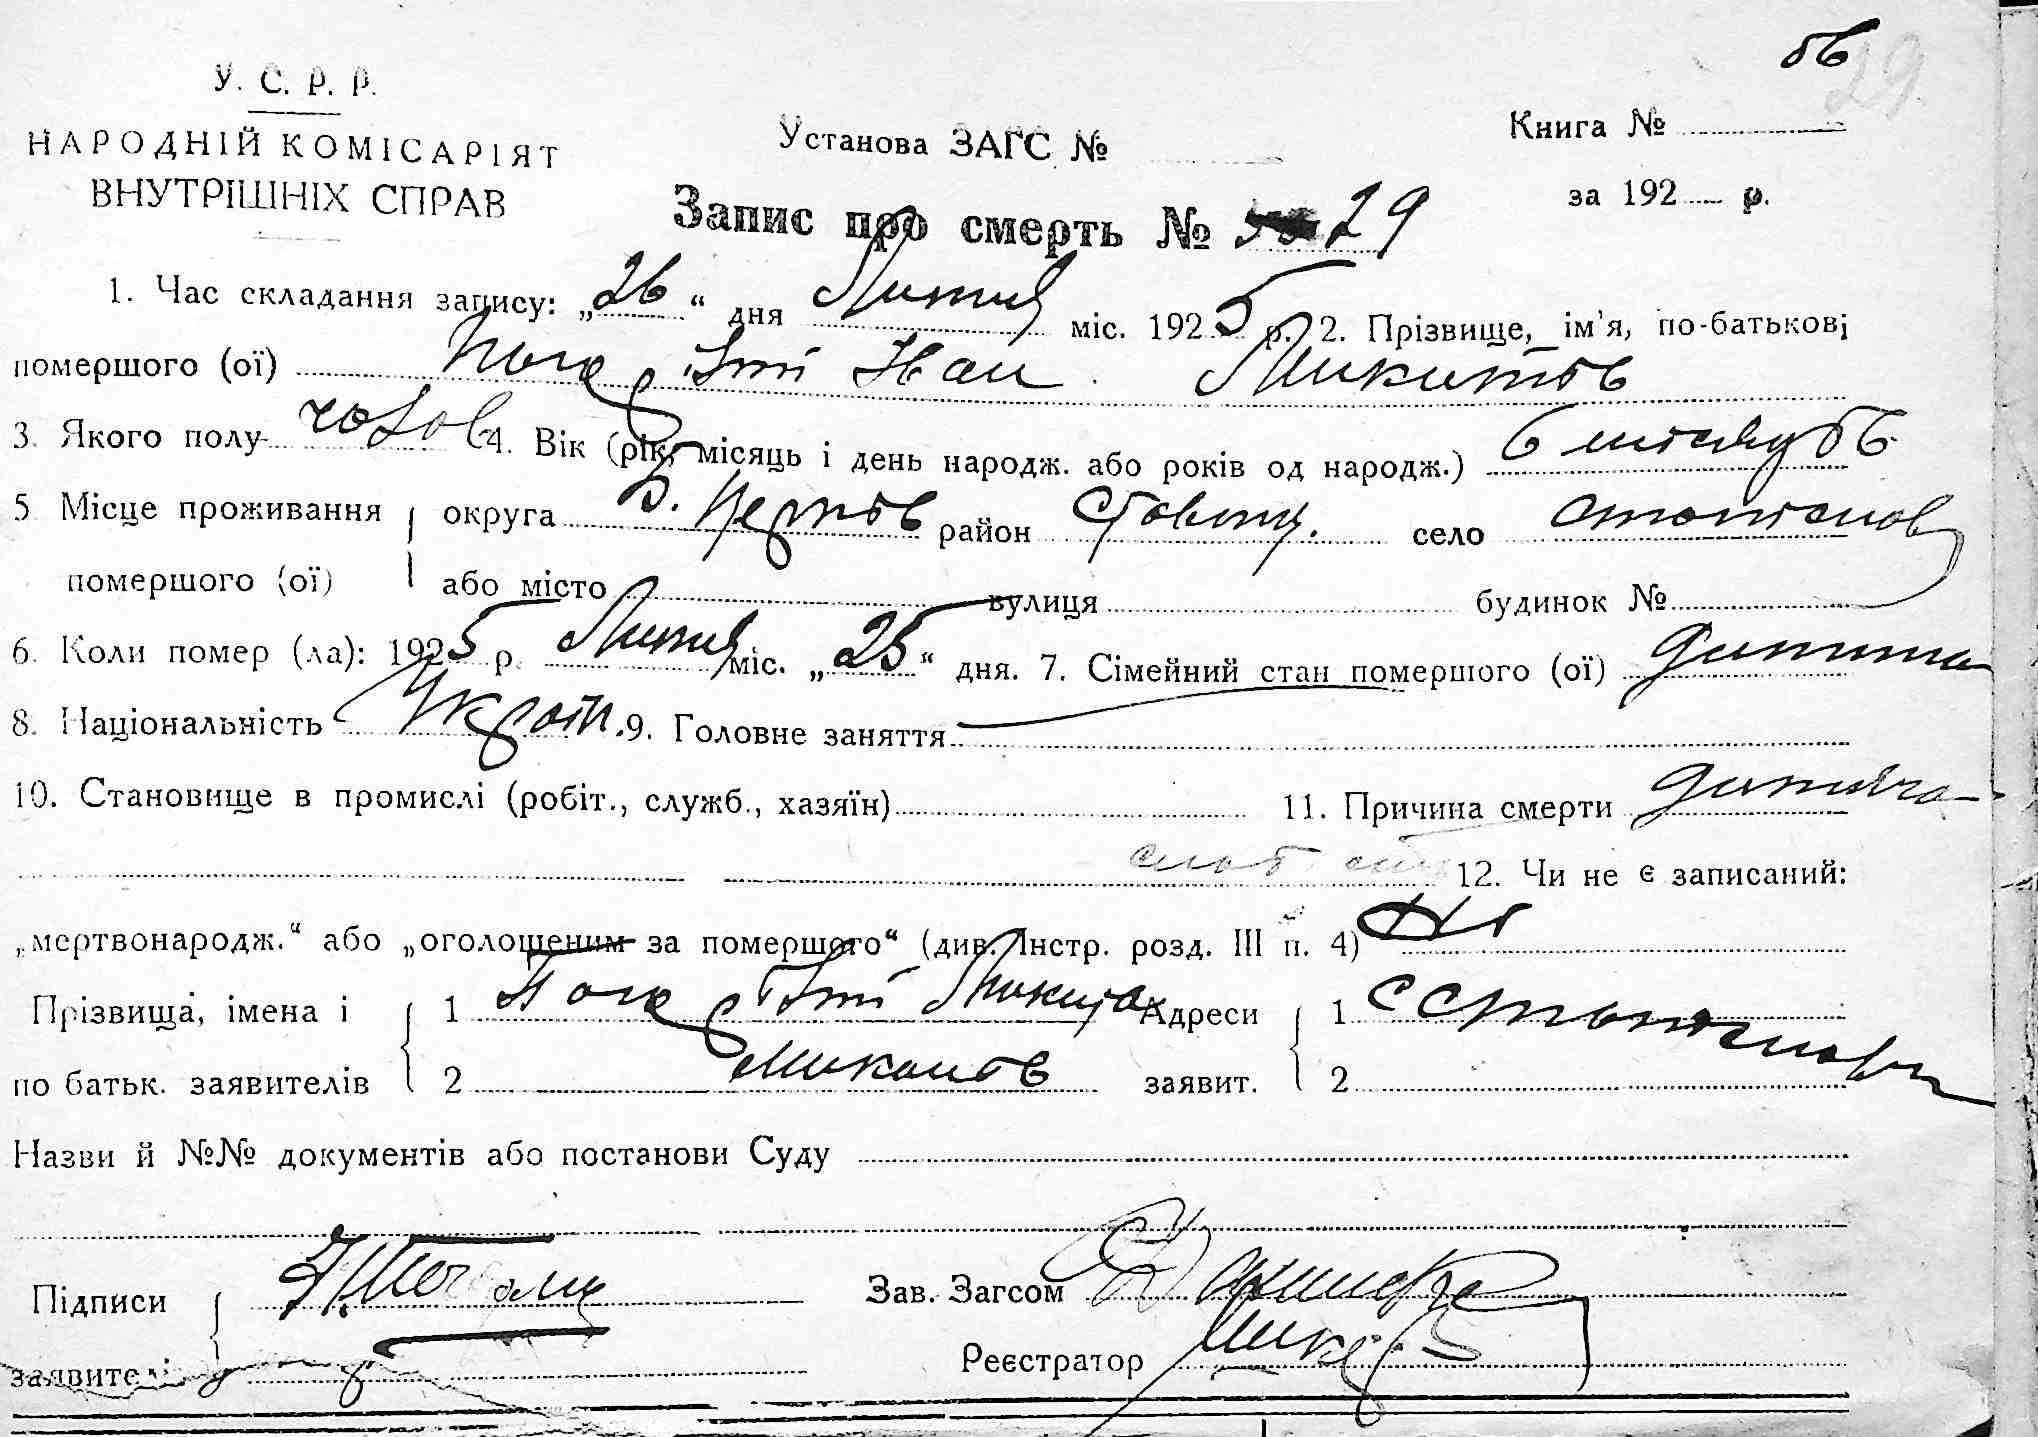 У. С. Р. Р.
НАРОДНІЙ КОМІСАРІЯТ
ВНУТРІШНІХ СПРАВ
Установа ЗАГС №
Книга №
за 192 р.
Запис про смерть № 29
1. Час складання запису: „26“ дня Липня міс. 1925 р. 2. Прізвище, ім’я, по-батькові
помершого (ої) Іван Микитов
3. Якого полу чолов 4. Вік (рік, місяць і день народж. або років од народж.) 6 місяцув
5 Місце проживання округа Б. Церков район Ставищ. село
помершого (ої) або місто вулиця будинок №
6. Коли помер (ла): 1925 р. Липня міс. „25“ дня. 7. Сімейний стан помершого (ої) дитина
8. Національність Україн. 9. Головне заняття
10. Становище в промислі (робіт., служб., хазяїн) 11. Причина смерти дитяча
12. Чи не є записаний:
„мертвонародж.“ або „оголошеним за помершого“ (див. Інстр. розд. III п. 4) Ні
Прізвища, імена і 1 Микита Адреси 1 с
по батьк. заявителів 2 заявит. 2
Назви й №№ документів або постанови Суду
Підписи Зав. Загсом
заявителі Реєстратор